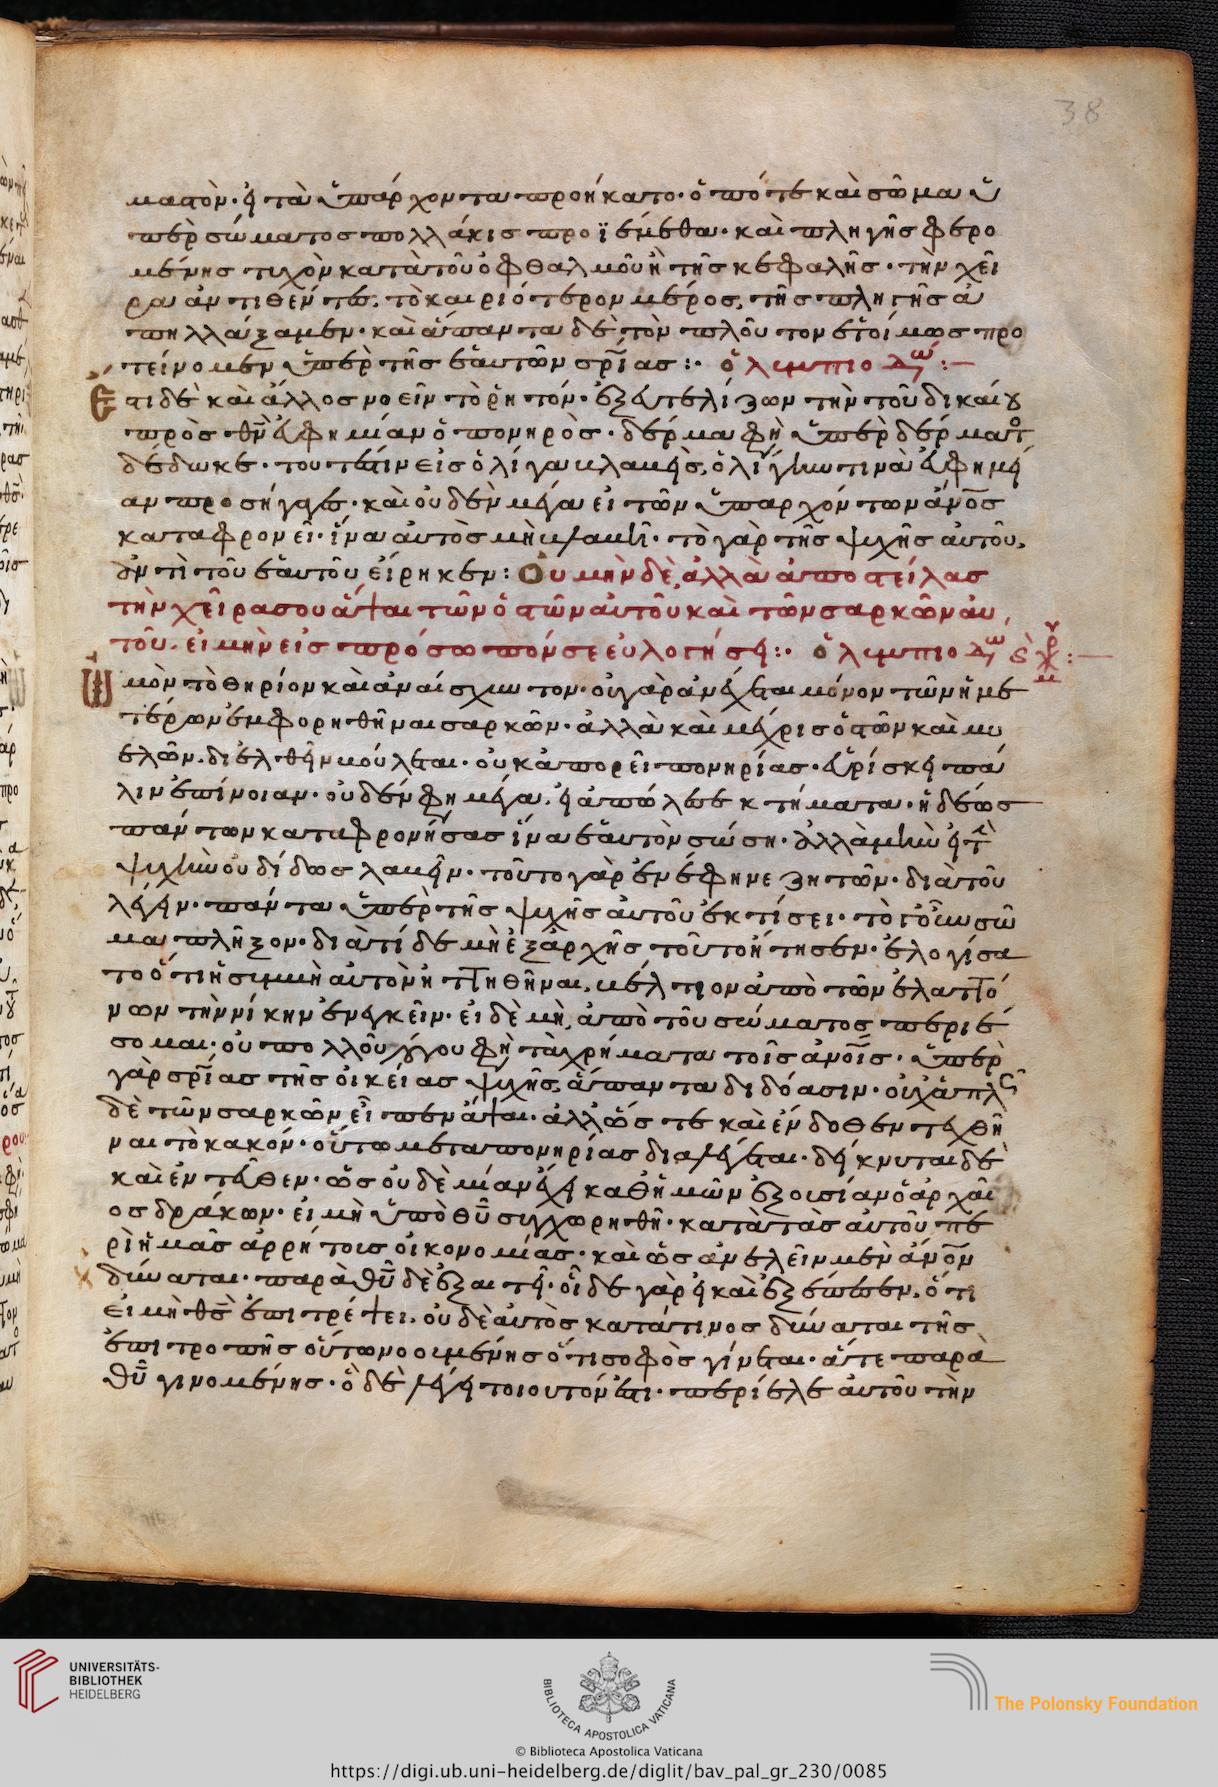 38
μαστὸν· εἰ τὰ ὑπάρχοντα προήκατο· ὁπότε καὶ σῶμα ὑ
πὲρ σώματος πολλάκις προϊέμεθα· καὶ πληγῆς φερο
μένης τυχὸν κατὰ τοῦ ὀφθαλμοῦ ἢ τῆς κεφαλῆς· τὴν χεῖ
ρα ἀντιθέντες, τὸ καιριότερον μέρος, τῆς πληγῆς ἀ
πηλλάξαμεν· καὶ ἅπαντα δὲ τὸν πλοῦτον ἑτοίμως προ
τείνομεν ὑπὲρ τῆς ἑαυτῶν σρίας :· ὀλυμπιοδώ :—
Ἔτι δὲ καὶ ἄλλος νοεῖν τὸ ῥητόν· ἐξευτελίζων τὴν τοῦ δικαίου
πρὸς θν εὐφημίαν ὁ πονηρὸς· δέρμα φησὶ ὑπὲρ δέρματος
δέδωκε· τουτέστιν εἰς ὀλίγα βλαβεὶς, ὀλίγην τινὰ εὐφημί
αν προσήγαγε· καὶ οὐδὲν μέγα εἰ τῶν ὑπαρχόντων ἀνος
καταφρονεῖ· ἵνα αὐτὸς μὴ βλαβῆ· τὸ γὰρ τῆς ψυχῆς αὐτοῦ,
ἀντὶ τοῦ ἑαυτοῦ εἴρηκεν : Οὐ μὴν δὲ ἀλλὰ ἀποστείλας
τὴν χεῖρα σου ἅψαι τῶν ὀστῶν αὐτοῦ καὶ τῶν σαρκῶν αὐ
τοῦ. εἰ μὴν εἰς πρόσωπόν σε εὐλογήσει :· ὀλυμπιοδώ
Ὠμὸν τὸ θηρίον καὶ ἀναίσχυντον· οὐ γὰρ ἀνέχεται μόνον τῶν ἡμε
τέρων ἐμφορηθῆναι σαρκῶν· ἀλλὰ καὶ μέχρις ὀστῶν καὶ μυ
ελῶν. διελθεῖν βούλεται· οὐκ ἀπορεῖ πονηρίας· εὑρίσκει πά
λιν ἐπίνοιαν· οὐδέν φημι μέγα. εἰ ἀπώλεσε κτήματα· ἡδέως
πάντων καταφρονήσας ἵνα ἑαυτὸν σώση· ἀλλὰ μὴν εἰ τὴν
ψυχὴν οὐ δίδως λαβεῖν· τοῦτο γὰρ ἐνέφηνε ζητῶν· διὰ τοῦ
λέγειν· πάντα ὑπὲρ τῆς ψυχῆς αὐτοῦ ἐκτίσει· τὸ γοῦν σῶ
μα πλῆξον· διατί δὲ μὴ ἐξ ἀρχῆς τοῦτο ἤτησεν· ἐλογίσα
το ὅτι ἢ συμβῆ αὐτὸν ἡττηθῆναι, βέλτιον ἀπὸ τῶν ἐλαττό
νων τὴν νίκην ἐνεγκεῖν· εἰ δὲ μὴ, ἀπὸ τοῦ σώματος περιέ
σομαι· οὐ πολλοῦ λόγου φησὶ τὰ χρήματα τοῖς ἀνοις· ὑπὲρ
γὰρ σρίας τῆς οἰκείας ψυχῆς, ἅπαντα διδόασιν· οὐχ ἁπλῶς
δὲ τῶν σαρκῶν εἶπεν ἅψαι· ἀλλ' ὥστε καὶ ἔνδοθεν ταχθῆ
ναι τὸ κακόν· οὕτω μετὰ πονηρίας διαλέγεται· δείκνυται δὲ
καὶ ἐντεῦθεν· ὡς οὐδὲ μίαν ἔχει καθ' ἡμῶν ἐξουσίαν ὁ ἀρχαῖ
ος δράκων· εἰ μὴ ὑπὸ θυ συγχωρηθῆ· κατὰ τὰς αὐτοῦ πε
ρὶ ἡμᾶς ἀρρήτους οἰκονομίας· καὶ ὡς ἀνελεῖν μὲν ἀνον
δύναται· παρὰ θυ δὲ ἐξαιτεῖ· οἶδε γὰρ εἰ καὶ ἐξέπεσεν, ὅτι
εἰ μὴ θς ἐπιτρέψει. οὐδὲ αὐτὸς κατά τινος δύναται τῆς
ἐπιτροπῆς οὕτω νοουμένης ὅτι σοφὸς γίνεται· ἅτε παρὰ
θυ γινομένης· ὃ δὲ λέγει τοιοῦτόν ἐστι· περίελε αὐτοῦ τὴν
UNIVERSITÄTS-
BIBLIOTHEK
HEIDELBERG
BIBLIOTECA APOSTOLICA VATICANA
The Polonsky Foundation
© Biblioteca Apostolica Vaticana
https://digi.ub.uni-heidelberg.de/diglit/bav_pal_gr_230/0085